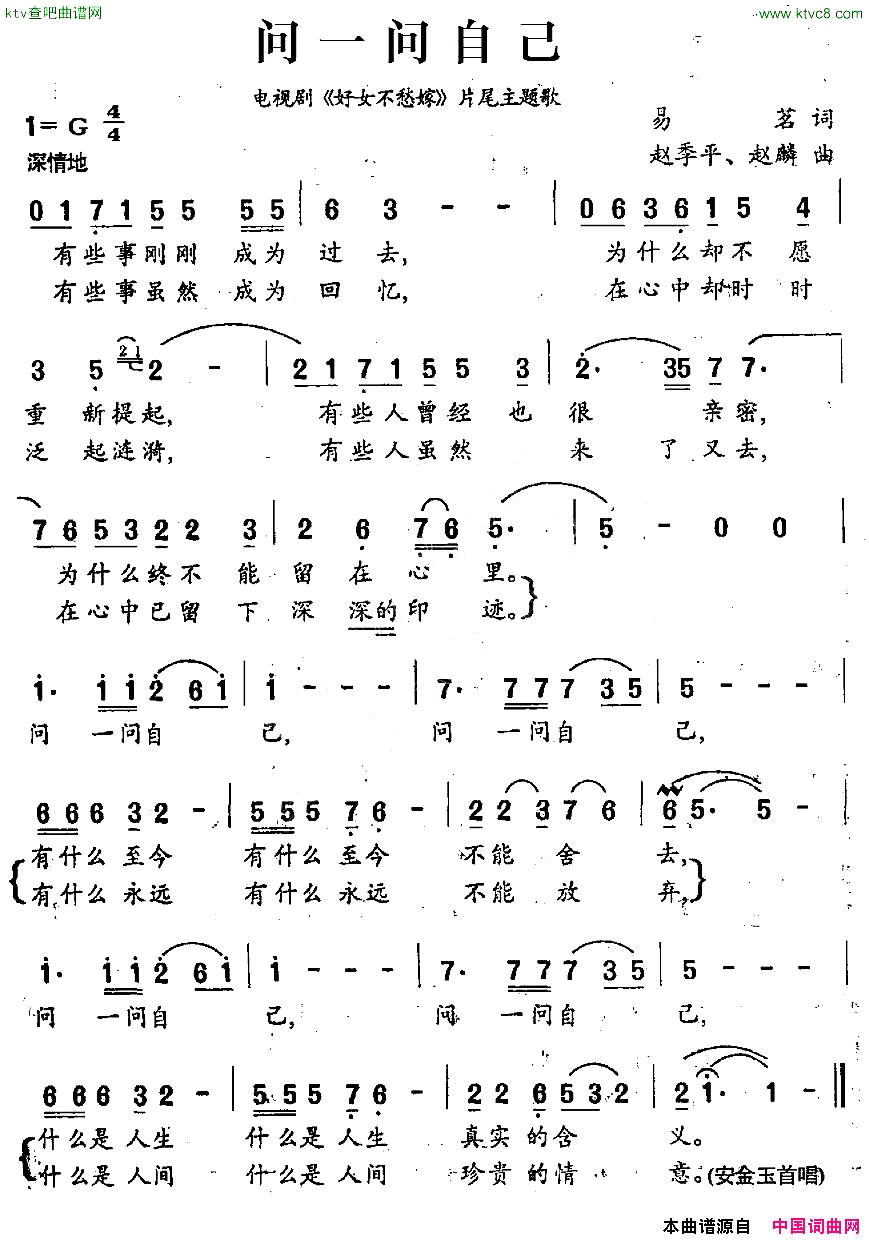 ktv查吧曲谱网
www.ktvc8.com
问一问自己
电视剧《好女不愁嫁》片尾主题歌
1=G 4/4
易茗词
深情地
赵季平、赵麟 曲
0 1 7 1 5 5 5 5 5 | 6 3 - - | 0 6 3 6 1 5 4 |
有些事刚刚 成为 过 去, 为什么却不 愿
有些事虽然 成为 回 忆, 在心中却时 时
3 5 21 2 - | 2 1 7 1 5 5 3 | 2· 35 7 7· |
重 新提起, 有些人曾经 也 很 亲密,
泛 起涟漪, 有些人虽然 来 了 又去,
7 6 5 3 2 2 3 | 2 6 7 6 5· | 5 - 0 0 |
为什么终不 能 留 在 心 里。
在心中已留 下 深 深的印 迹。
1· 1 1 2 6 1 | 1 - - - | 7· 7 7 7 3 5 | 5 - - - |
问 一问自 己, 问 一问自 己,
6 6 6 3 2 - | 5 5 5 7 6 - | 2 2 3 7 6 | 6 5· 5 - |
有什么 至今 有什么 至今 不能 舍 去,
有什么 永远 有什么 永远 不能 放 弃,
1· 1 1 2 6 1 | 1 - - - | 7· 7 7 7 3 5 | 5 - - - |
问 一问自 己, 问 一问自 己,
6 6 6 3 2 - | 5 5 5 7 6 - | 2 2 6 5 3 2 | 2 1· 1 - ||
什么是 人生 什么是 人生 真实 的含 义。
什么是 人间 什么是 人间 珍贵 的情 意。(安金玉首唱)
本曲谱源自 中国词曲网